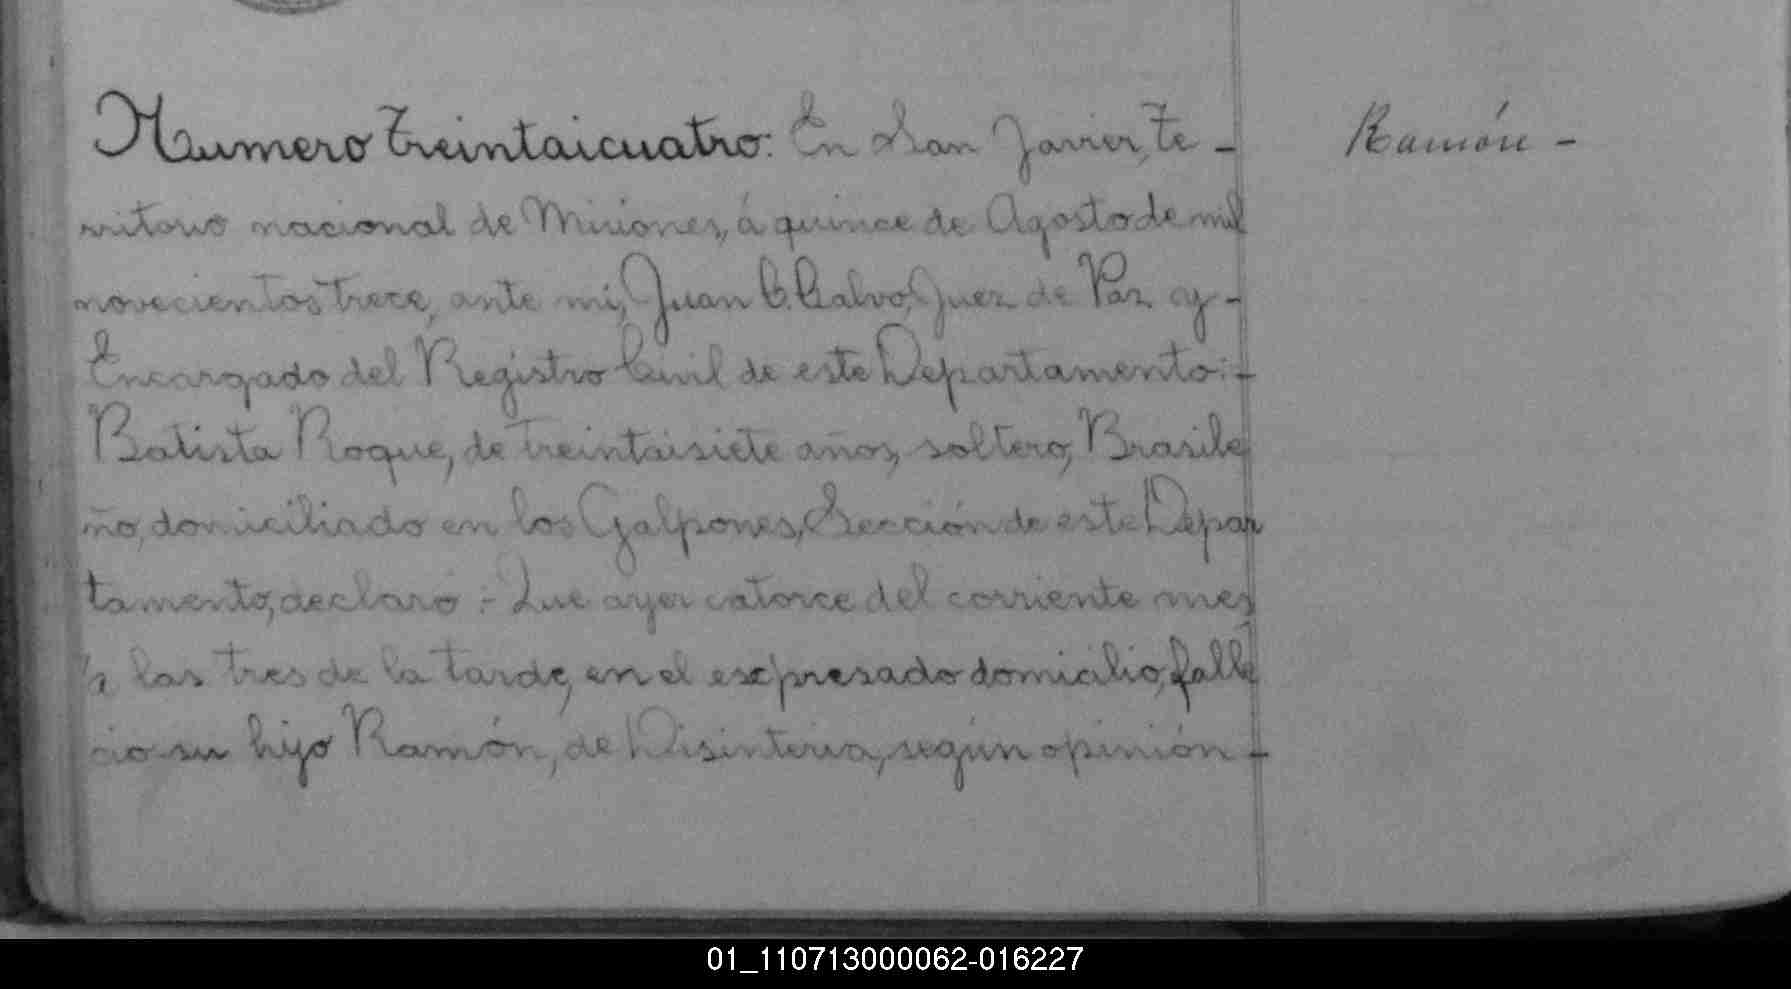 Numero treintaicuatro: En San Javier, Te- Ramón-
rritorio nacional de Misiones, á quince de Agosto de mil
novecientos trece, ante mi, Juan C. Calvo, Juez de Paz y-
Encargado del Registro Civil de este Departamento:-
Batista Roque, de treintaisiete años, soltero, Brasile
ño, domiciliado en los Galpones, Sección de este Depar
tamento, declaró:- Que ayer catorce del corriente mes
á las tres de la tarde, en el expresado domicilio, falle
cio su hijo Ramón, de Disinteria, según opinión-
01_110713000062-016227